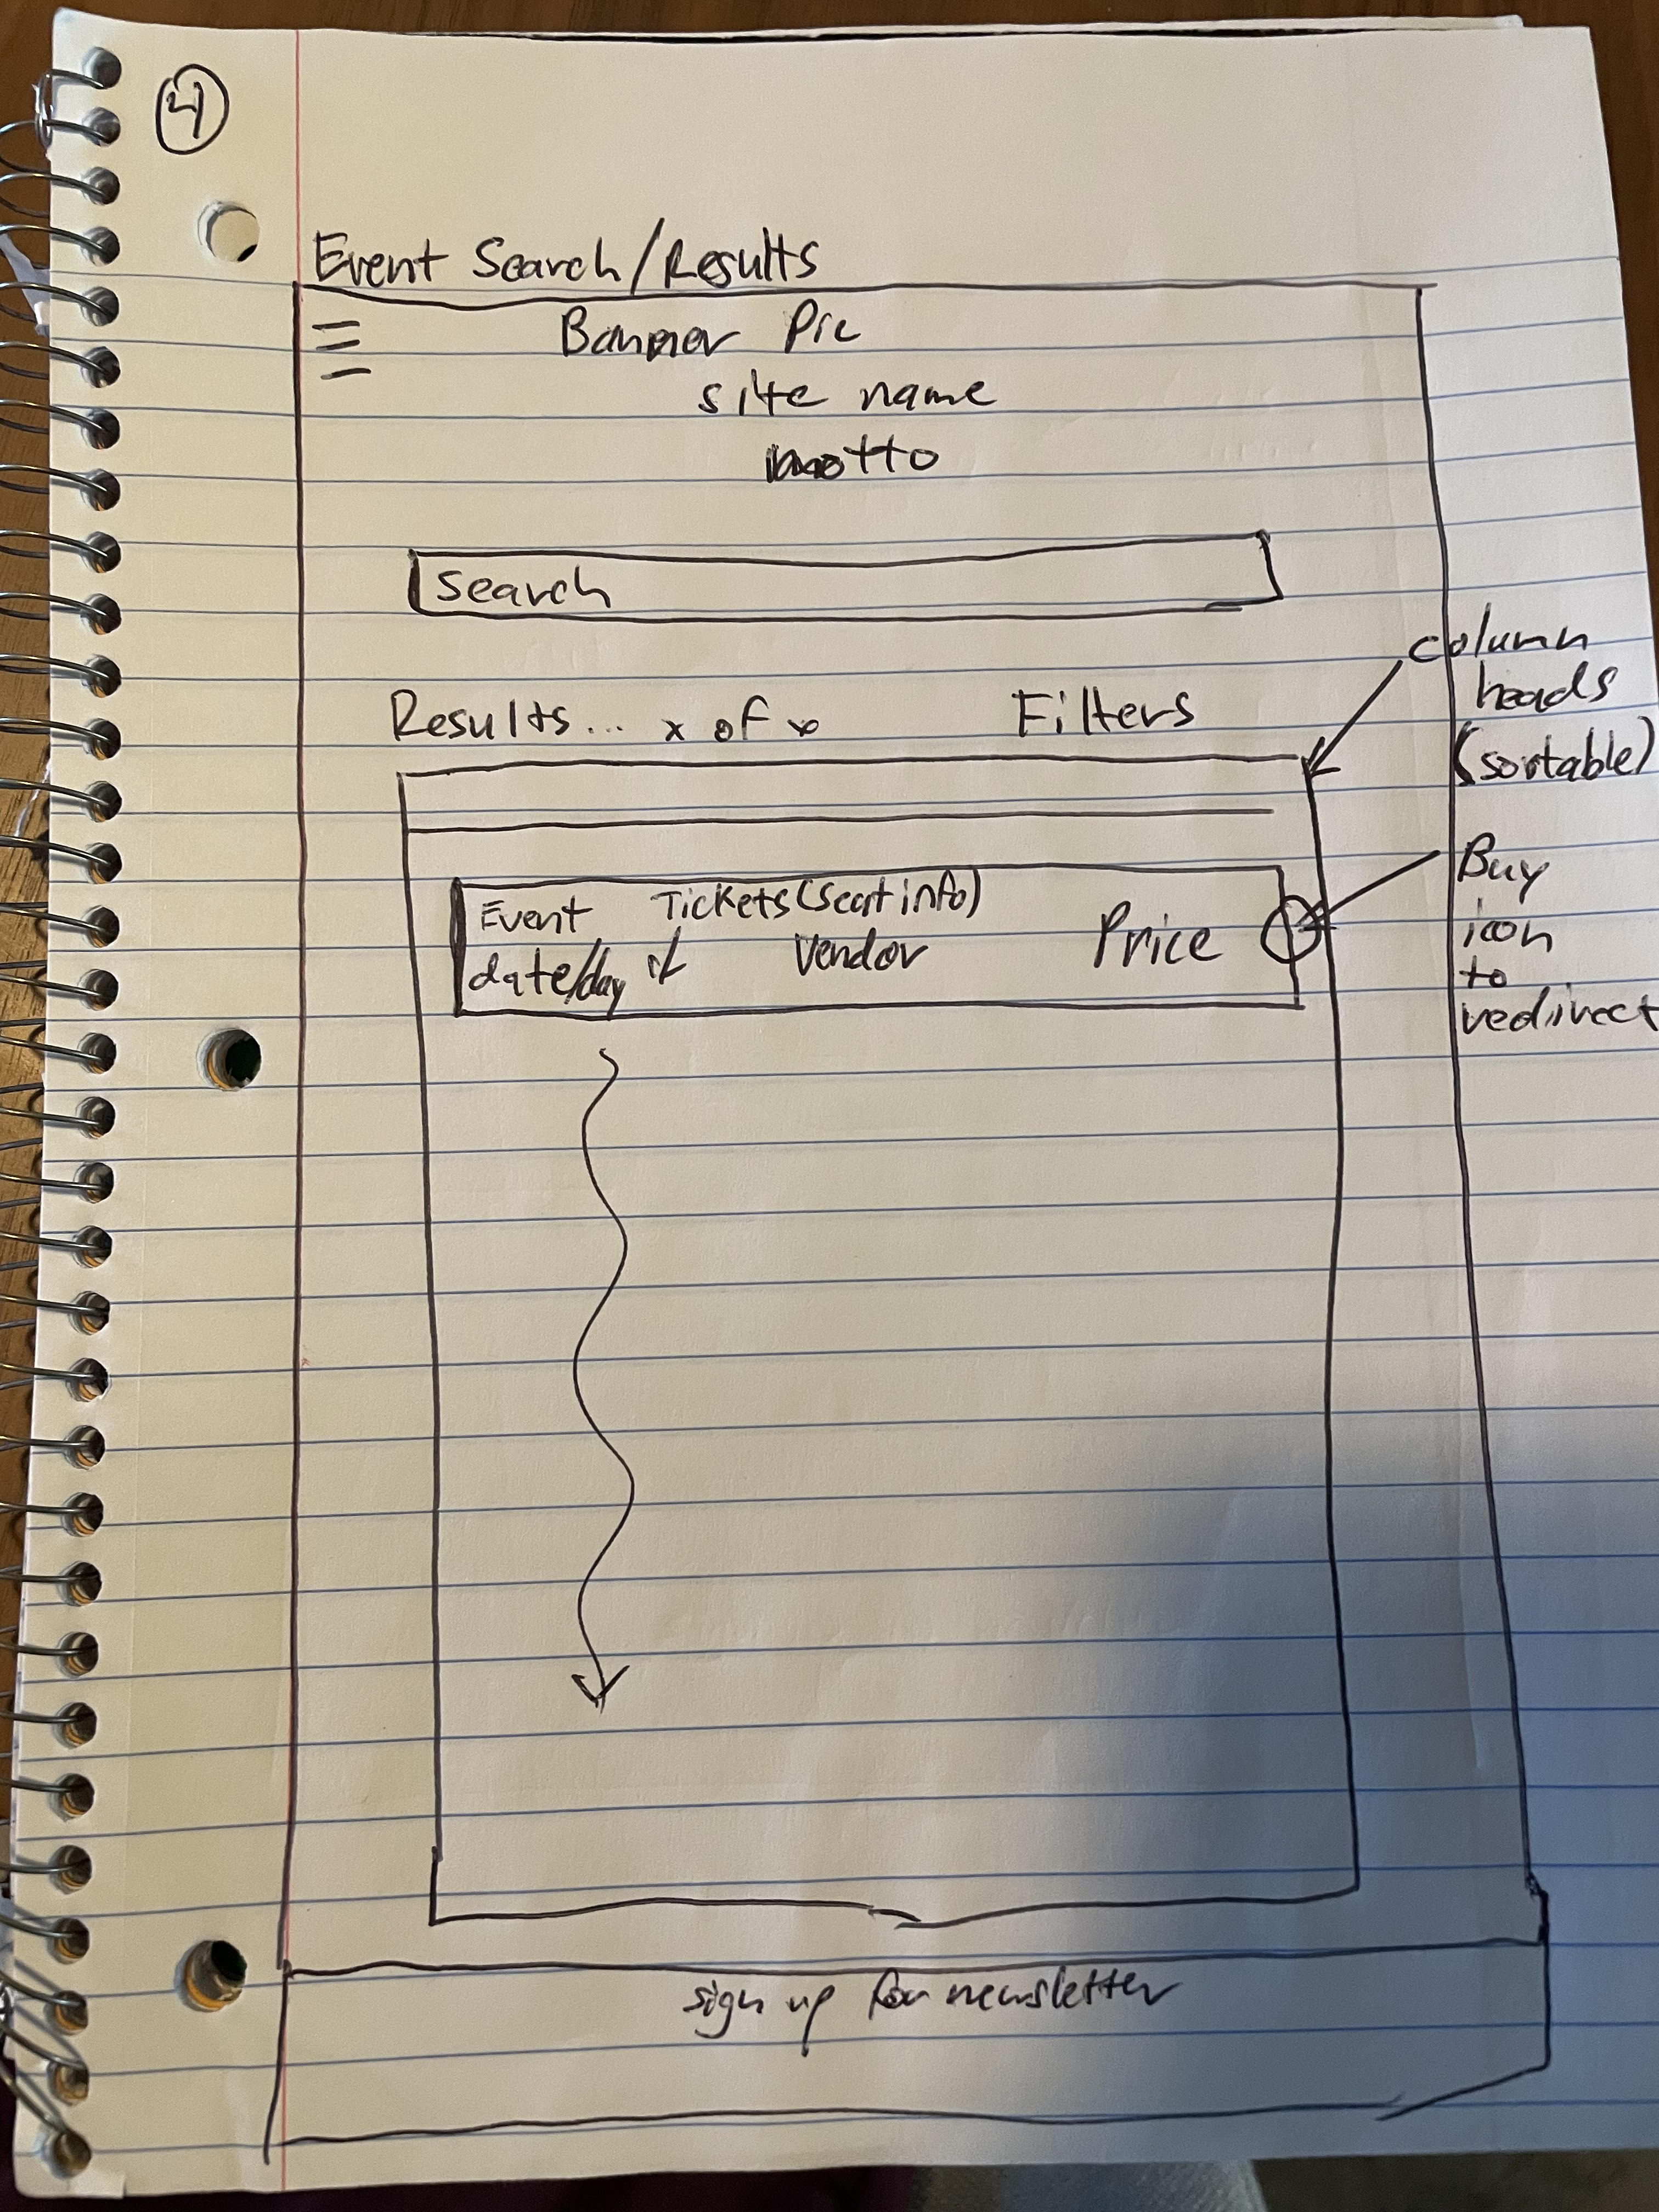 4
Event Search/Results
Banner Pic
site name
motto
search
Results... x of x
Filters
column
heads
(sortable)
Event Tickets(seat info)
date/day # Vendor Price
Buy
icon
to
redirect
sign up for newsletter